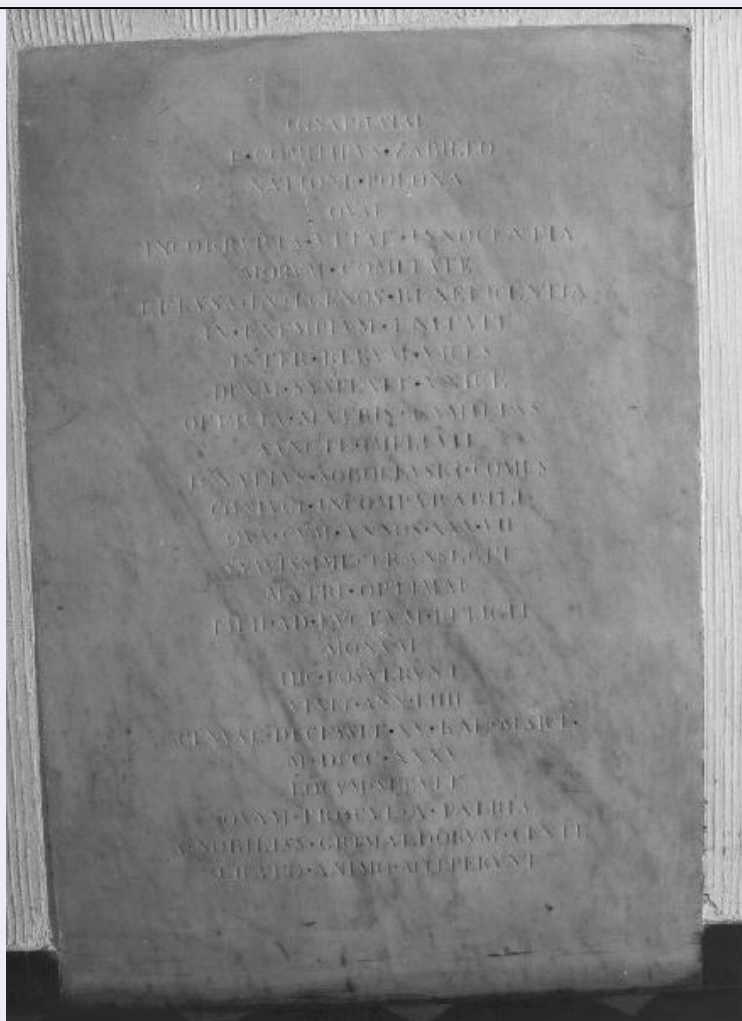 E · COMITIBVS · ZABIELLO
NATIONE · POLONA
QVAE
INCORRVPTA · VITAE · INNOCENTIA
MORVM · COMITATE
EFFVSA · IN · EGENOS · BENEFICENTIA
IN · EXEMPLVM · ENITVIT
INTER · RERVM · VICES
DEVM · SVSPEXIT · VNICE
OFFICIA · MATRIS · FAMILIAS
SANCTE · IMPLEVIT
IGNATIVS · SOBOLEVSKI · COMES
CONIVGI · INCOMPARABILI
QVA · CVM · ANNOS · XXXVII
SVAVISSIME · TRANSEGIT
MATRI · OPTIMAE
AD · LVCTVM ·
HIC · POSVERVNT
VIXIT · ANN · LIIII
GENVAE · DECESSIT · XV · KAL · MART ·
LOCVM · SEPVLT
QVAM · PROCVL · A · PATRIA
A · NOBILISS · GRIMALDORVM · GENTE
GRATO · ANIMO · ACCEPERVNT